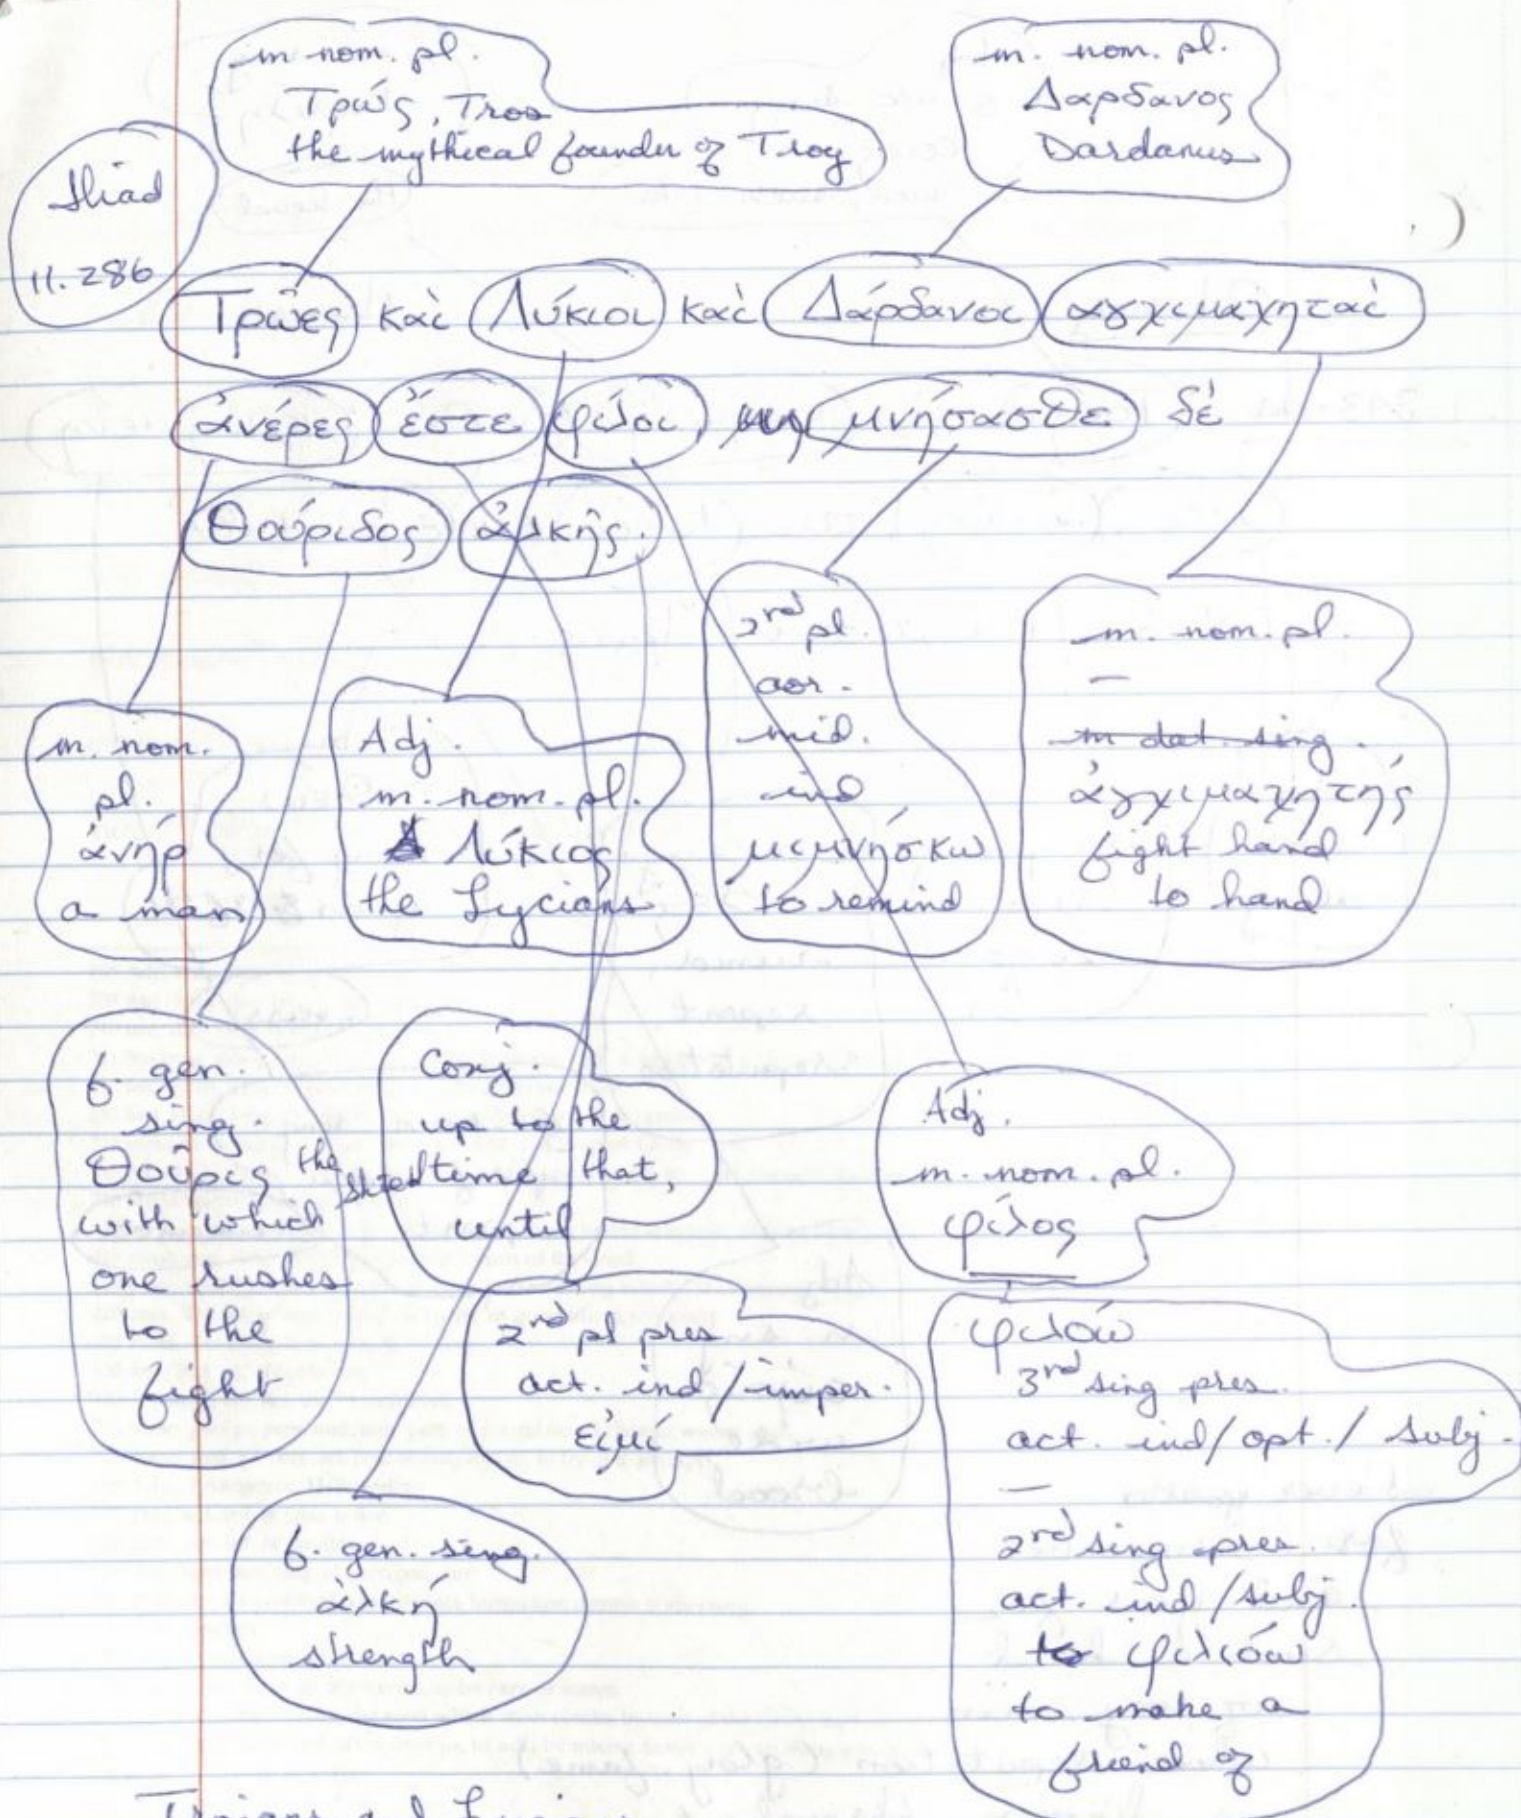 m nom. pl.
Τρώς, Tros
the mythical founder of Troy
m. nom. pl.
Δαρδανος
Dardanus
Iliad
11.286
Τρῶες καὶ Λύκιοι καὶ Δάρδανοι αγχιμαχηταὶ
ἀνέρες ἔστε φίλοι, μνήσασθε δέ
θούριδος ἀλκῆς.
m. nom.
pl.
ἀνήρ
a man
Adj.
m. nom. pl.
Λύκιος
the Lycians
2nd pl.
aor.
mid.
ind
μιμνήσκω
to remind
m. nom. pl.
—
m dat. sing.
ἀγχιμαχητής
fight hand
to hand
f. gen.
sing.
θοῦρις the
with which
one rushes
to the
fight
Conj.
up to the
time that,
until
2nd pl pres
act. ind/imper.
εἰμί
Adj.
m. nom. pl.
φίλος
φιλόω
3rd sing pres.
act. ind/opt./subj.
—
2nd sing pres.
act. ind/subj.
φιλιόω
to make a
friend of
f. gen. sing.
ἀλκή
strength
Trojans and Lycians